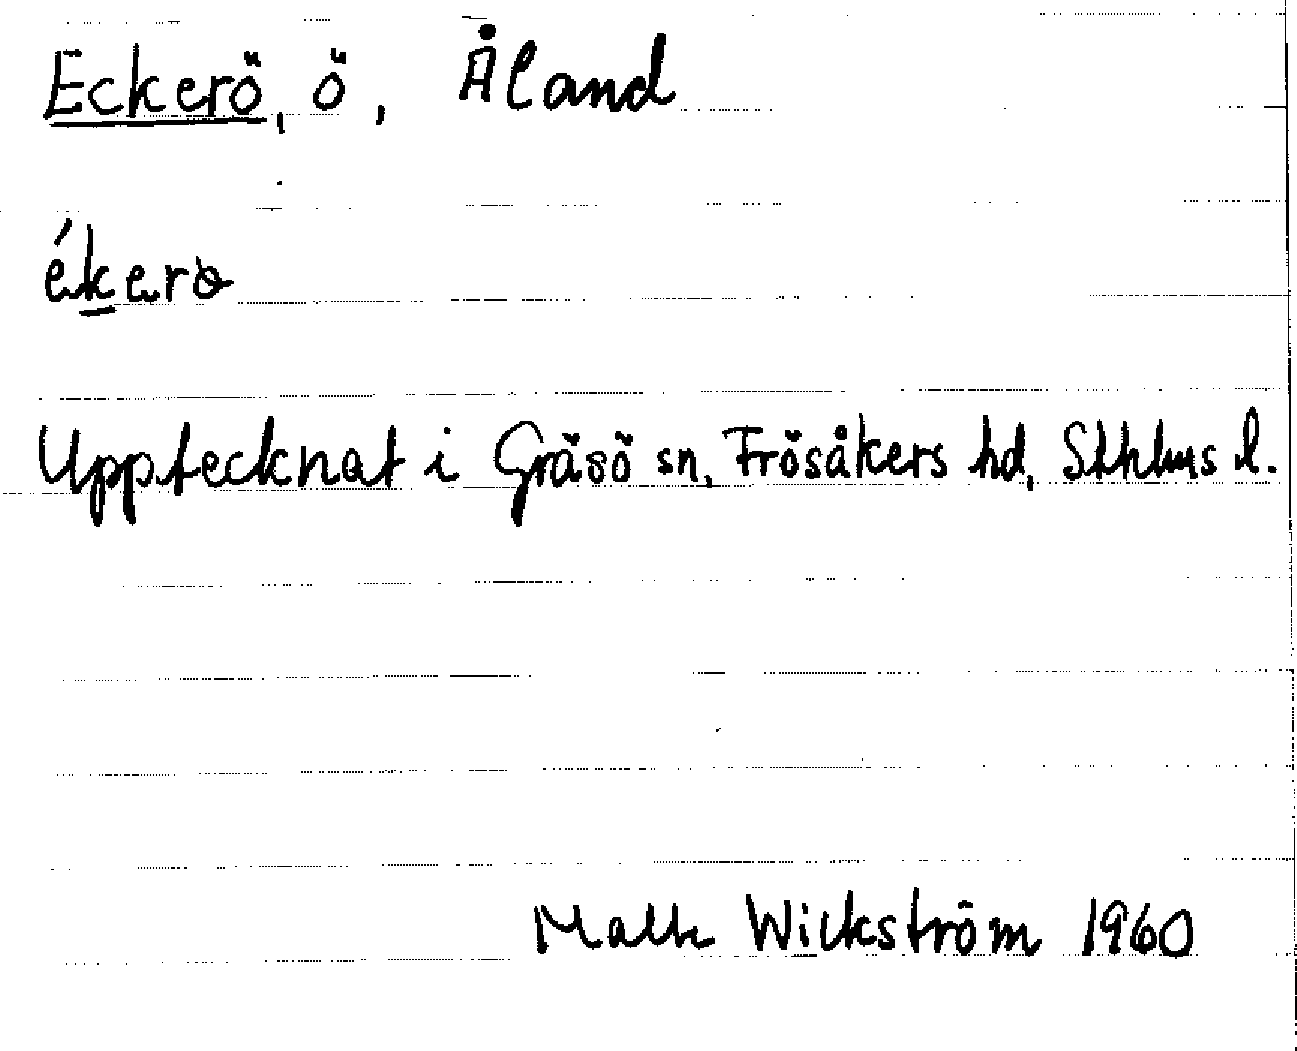 Eckerö, ö, Åland
ékerə
Upptecknat i Gräsö sn, Frösåkers hd, Sthlms l.
Wickström 1960